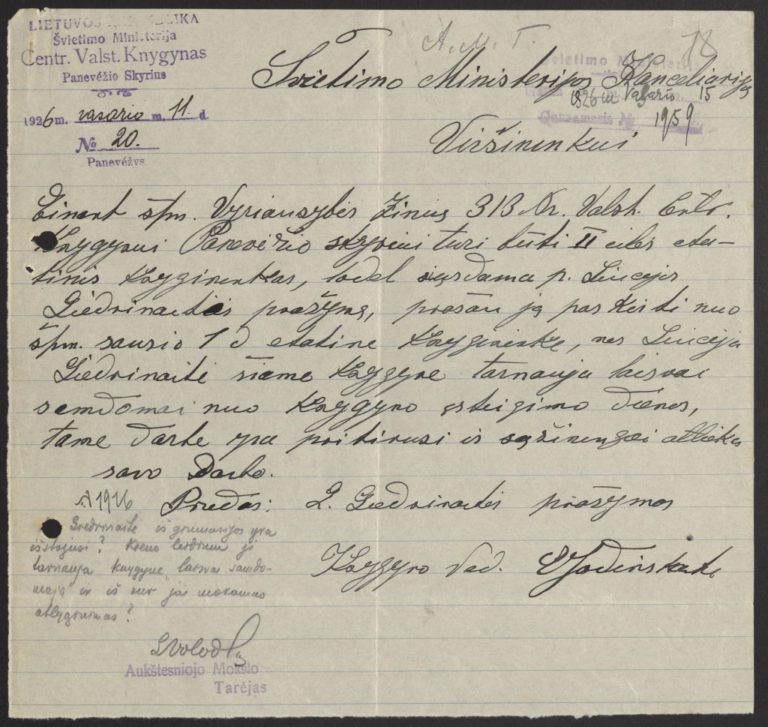 LIETUVOS RESPUBLIKA
Švietimo Ministerija
Centr. Valst. Knygynas
Panevėžio Skyrius
1926 m. vasario m. 11 d.
№ 20.
Panevėžys
A. M. T.
Švietimo Ministerijos Kanceliarijos
1926 m Vasario 15
Gaunamasis № 1959
Viršininkui
Einant šįm. Vyriausybės Žinių 313 Nr. Valst. Centr.
Knygynui Panevėžio skyriui turi būti II eilės eta-
tinis Knygininkas, todėl siųsdama p. Liucijos
Giedrinaitės prašymą, prašau ją paskirti nuo
šįm. sausio 1 d etatine Knygininke, nes Liucija
Giedrinaitė šiame Knygyne tarnauja laisvai
samdomai nuo Knygyno įsteigimo dienos,
tame darbe yra pritirusi ir sąžiningai atlieka
savo Darbo.
№ 1926
Priedas: L. Giedrinaitės prašymas
Giedrinaitė iš gimnazijos yra
išstojusi? Kieno leidimu ji
tarnauja knygyne laisvai samdo-
mąja ir iš kur jai mokamas
atlyginimas?
Knygyno Ved.
Aukštesniojo Mokslo
Tarėjas